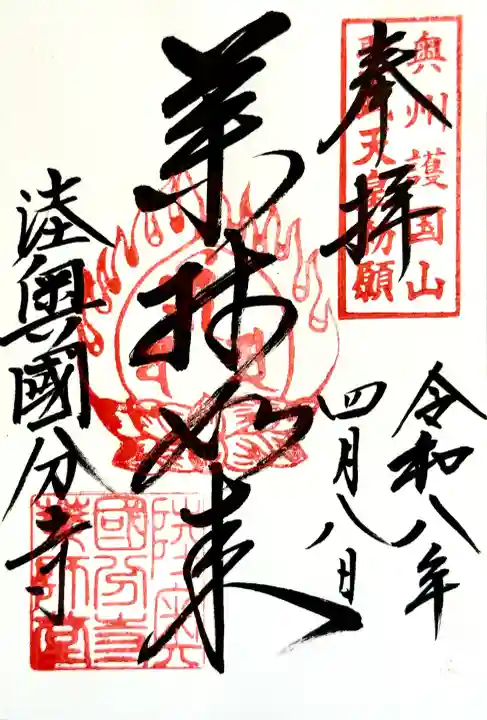 奉拝
奥州護国山
聖武天皇勅願
令和八年
四月八日
薬師如来
陸奥國分寺
陸奥
國分寺
薬師堂